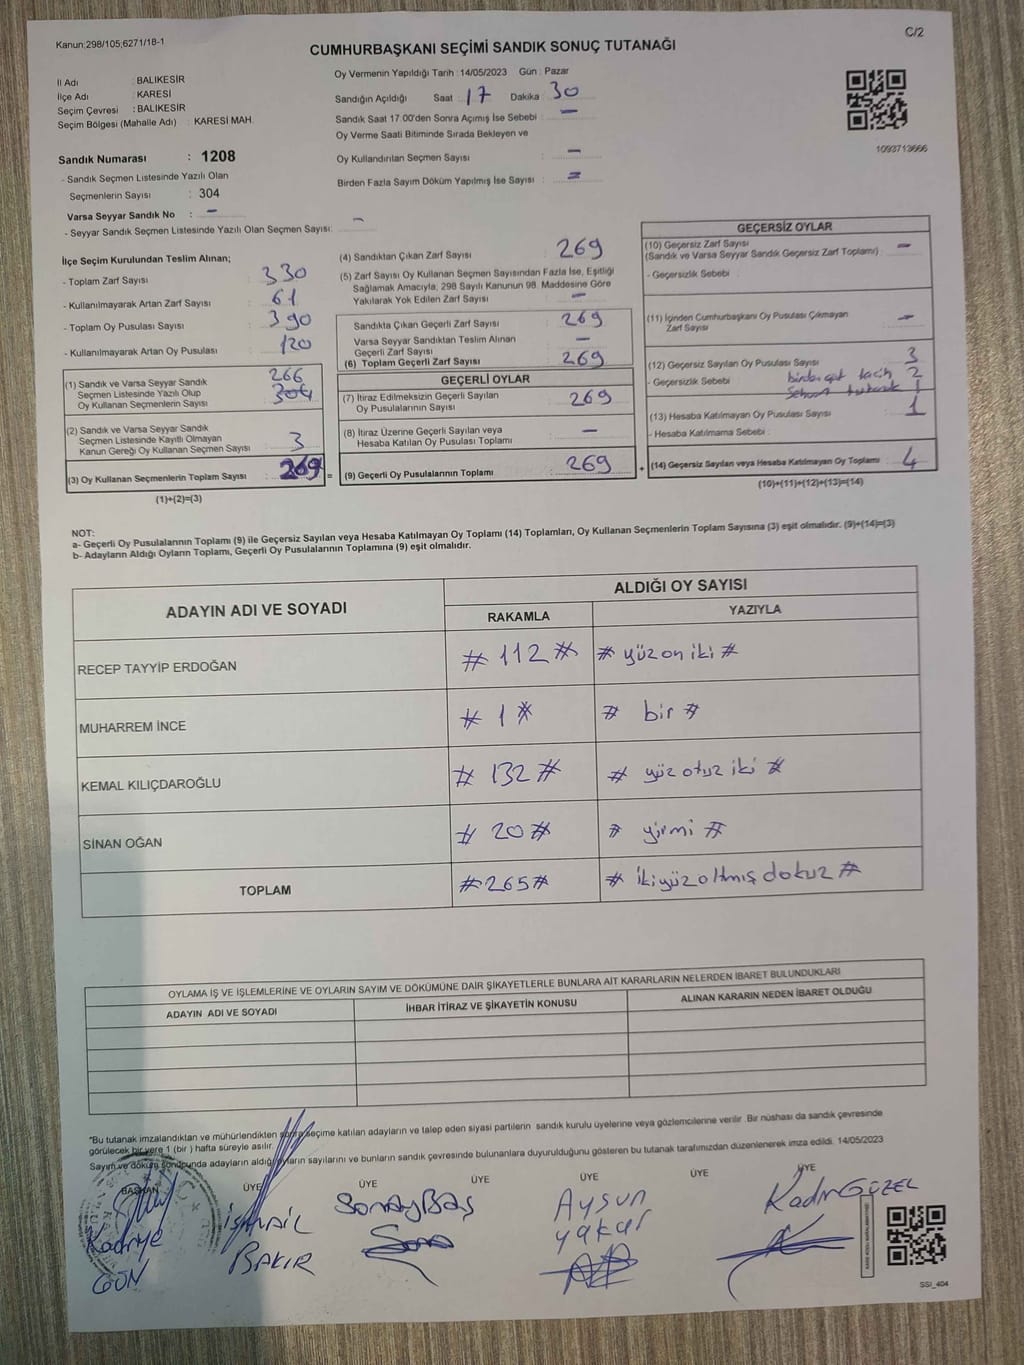 Kanun:298/105;6271/18-1
C/2
CUMHURBAŞKANI SEÇİMİ SANDIK SONUÇ TUTANAĞI
İl Adı : BALIKESİR
İlçe Adı : KARESİ
Seçim Çevresi : BALIKESİR
Seçim Bölgesi (Mahalle Adı) : KARESİ MAH.
Sandık Numarası : 1208
- Sandık Seçmen Listesinde Yazılı Olan
Seçmenlerin Sayısı : 304
Varsa Seyyar Sandık No : -
- Seyyar Sandık Seçmen Listesinde Yazılı Olan Seçmen Sayısı: -
Oy Vermenin Yapıldığı Tarih : 14/05/2023 Gün : Pazar
Sandığın Açıldığı Saat : 17 Dakika : 30
Sandık Saat 17.00'den Sonra Açılmış İse Sebebi : -
Oy Verme Saati Bitiminde Sırada Bekleyen ve
Oy Kullandırılan Seçmen Sayısı : -
Birden Fazla Sayım Döküm Yapılmış İse Sayısı : =
1093713666
İlçe Seçim Kurulundan Teslim Alınan;
- Toplam Zarf Sayısı : 330
- Kullanılmayarak Artan Zarf Sayısı : 61
- Toplam Oy Pusulası Sayısı : 390
- Kullanılmayarak Artan Oy Pusulası : 120
(1) Sandık ve Varsa Seyyar Sandık 266
Seçmen Listesinde Yazılı Olup 304
Oy Kullanan Seçmenlerin Sayısı
(2) Sandık ve Varsa Seyyar Sandık
Seçmen Listesinde Kayıtlı Olmayan
Kanun Gereği Oy Kullanan Seçmen Sayısı : 3
(3) Oy Kullanan Seçmenlerin Toplam Sayısı : 269 =
(1)+(2)=(3)
(4) Sandıktan Çıkan Zarf Sayısı : 269
(5) Zarf Sayısı Oy Kullanan Seçmen Sayısından Fazla İse, Eşitliği
Sağlamak Amacıyla, 298 Sayılı Kanunun 98. Maddesine Göre
Yakılarak Yok Edilen Zarf Sayısı : -
Sandıkta Çıkan Geçerli Zarf Sayısı : 269
Varsa Seyyar Sandıktan Teslim Alınan
Geçerli Zarf Sayısı : -
(6) Toplam Geçerli Zarf Sayısı : 269
GEÇERLİ OYLAR
(7) İtiraz Edilmeksizin Geçerli Sayılan
Oy Pusulalarının Sayısı : 269
(8) İtiraz Üzerine Geçerli Sayılan veya
Hesaba Katılan Oy Pusulası Toplamı : -
(9) Geçerli Oy Pusulalarının Toplamı : 269 +
GEÇERSİZ OYLAR
(10) Geçersiz Zarf Sayısı
(Sandık ve Varsa Seyyar Sandık Geçersiz Zarf Toplamı) : -
- Geçersizlik Sebebi :
(11) İçinden Cumhurbaşkanı Oy Pusulası Çıkmayan
Zarf Sayısı : -
(12) Geçersiz Sayılan Oy Pusulası Sayısı : 3
- Geçersizlik Sebebi : 2
1
(13) Hesaba Katılmayan Oy Pusulası Sayısı : 1
- Hesaba Katılmama Sebebi :
(14) Geçersiz Sayılan veya Hesaba Katılmayan Oy Toplamı : 4
(10)+(11)+(12)+(13)=(14)
NOT:
a- Geçerli Oy Pusulalarının Toplamı (9) ile Geçersiz Sayılan veya Hesaba Katılmayan Oy Toplamı (14) Toplamları, Oy Kullanan Seçmenlerin Toplam Sayısına (3) eşit olmalıdır. (9)+(14)=(3)
b- Adayların Aldığı Oyların Toplamı, Geçerli Oy Pusulalarının Toplamına (9) eşit olmalıdır.
ADAYIN ADI VE SOYADI
ALDIĞI OY SAYISI
RAKAMLA YAZIYLA
RECEP TAYYİP ERDOĞAN # 112 # # yüz on iki #
MUHARREM İNCE # 1 # # bir #
KEMAL KILIÇDAROĞLU # 132 # # yüz otuz iki #
SİNAN OĞAN # 20 # # yirmi #
TOPLAM #265# # ikiyüz altmış dokuz #
OYLAMA İŞ VE İŞLEMLERİNE VE OYLARIN SAYIM VE DÖKÜMÜNE DAİR ŞİKAYETLERLE BUNLARA AİT KARARLARIN NELERDEN İBARET BULUNDUKLARI
ADAYIN ADI VE SOYADI İHBAR İTİRAZ VE ŞİKAYETİN KONUSU ALINAN KARARIN NEDEN İBARET OLDUĞU
*Bu tutanak imzalandıktan ve mühürlendikten sonra seçime katılan adayların ve talep eden siyasi partilerin sandık kurulu üyelerine veya gözlemcilerine verilir. Bir nüshası da sandık çevresinde
görülecek bir yere 1 (bir) hafta süreyle asılır.
Sayım ve döküm sonucunda adayların aldığı oyların sayılarını ve bunların sandık çevresinde bulunanlara duyurulduğunu gösteren bu tutanak tarafımızdan düzenlenerek imza edildi. 14/05/2023
BAŞKAN ÜYE ÜYE ÜYE ÜYE ÜYE
Kadriye
GÜN
İSMAİL
BAKIR
Sonay Baş
Aysun
yakar
Kadir GÜZEL
SSI_404